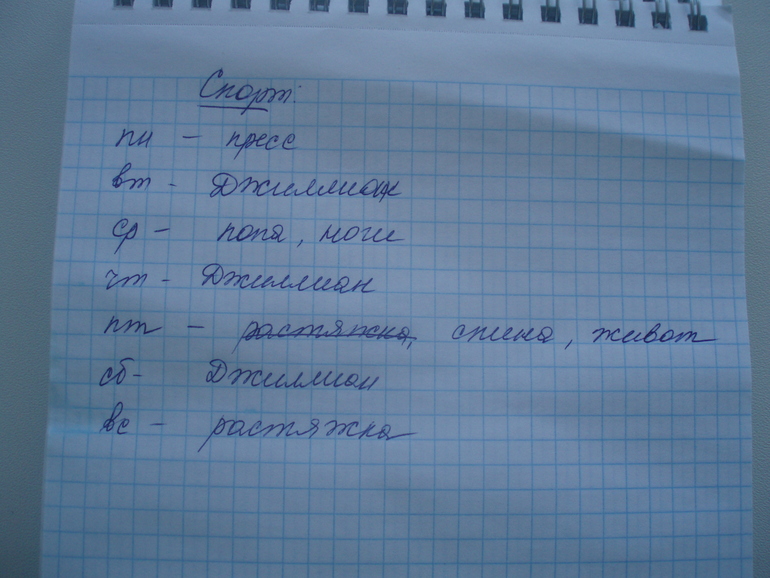 Спорт:
пн - пресс
вт - Джиллиан
ср - попа, ноги
чт - Джиллиан
пт - растяжка, спина, живот
сб - Джиллиан
вс - растяжка